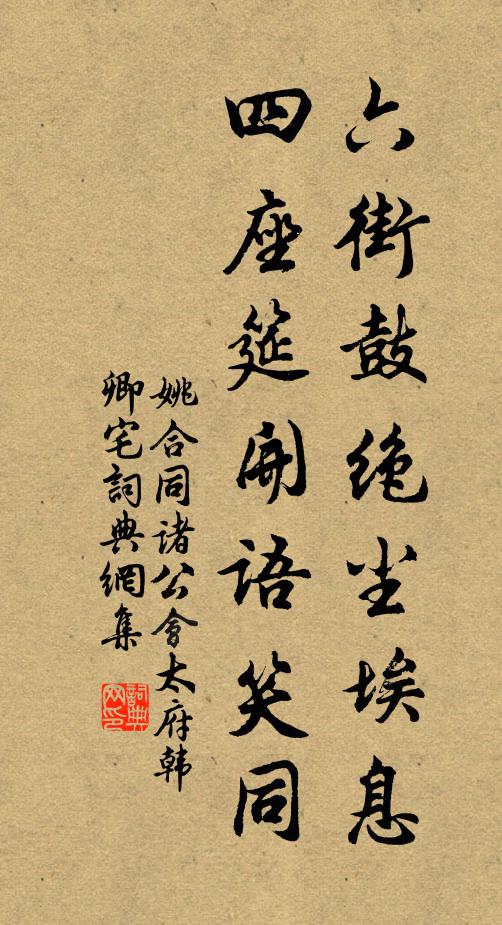 六街鼓绝尘埃息
四座筵開語笑同
姚合同诸公會太府韩
卿宅詞典網集
詞典
网印